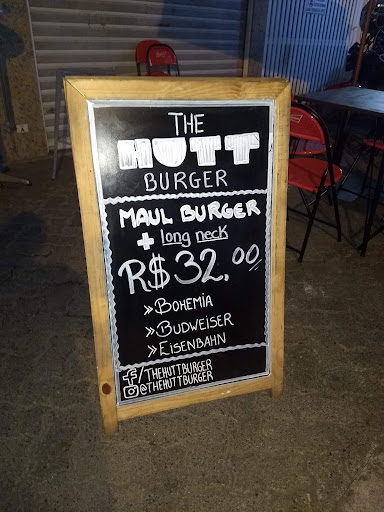 THE
HUTT
BURGER
MAUL BURGER
+ long neck
R$32,00
» BOHEMIA
» BUDWEISER
» EISENBAHN
f/THEHUTTBURGER
@THEHUTTBURGER